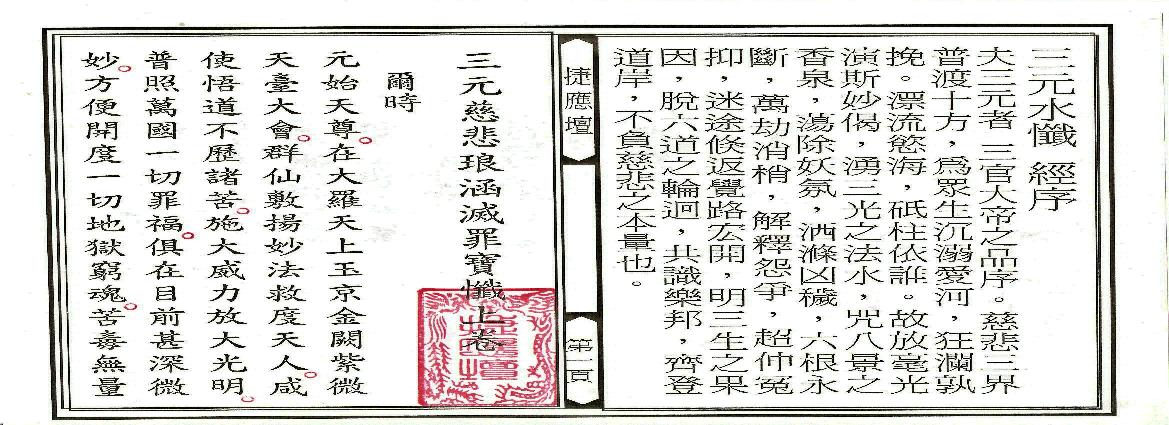 三元水懺 經序
夫三元者 三官大帝之品序。慈悲三界
普渡十方，為眾生沉溺愛河，狂瀾孰
挽。漂流慾海，砥柱依誰。故放毫光
演斯妙偈，湧三光之法水，咒八景之
香泉，蕩除妖氛，洒滌凶穢，六根永
斷，萬劫消梢，解釋怨爭，超伸冤
抑，迷途倏返覺路宏開，明三生之果
因，脫六道之輪迴，共識樂邦，齊登
道岸，不負慈悲之本量也。
捷應壇
第一頁
三元慈悲琅涵滅罪寶懺上卷
爾時
元始天尊。在大羅天上玉京金闕紫微
天臺大會。群仙敷揚妙法救度天人。咸
使悟道不歷諸苦。施大威力放大光明。
普照萬國一切罪福。俱在目前甚深微
妙。方便開度一切地獄窮魂。苦毒無量